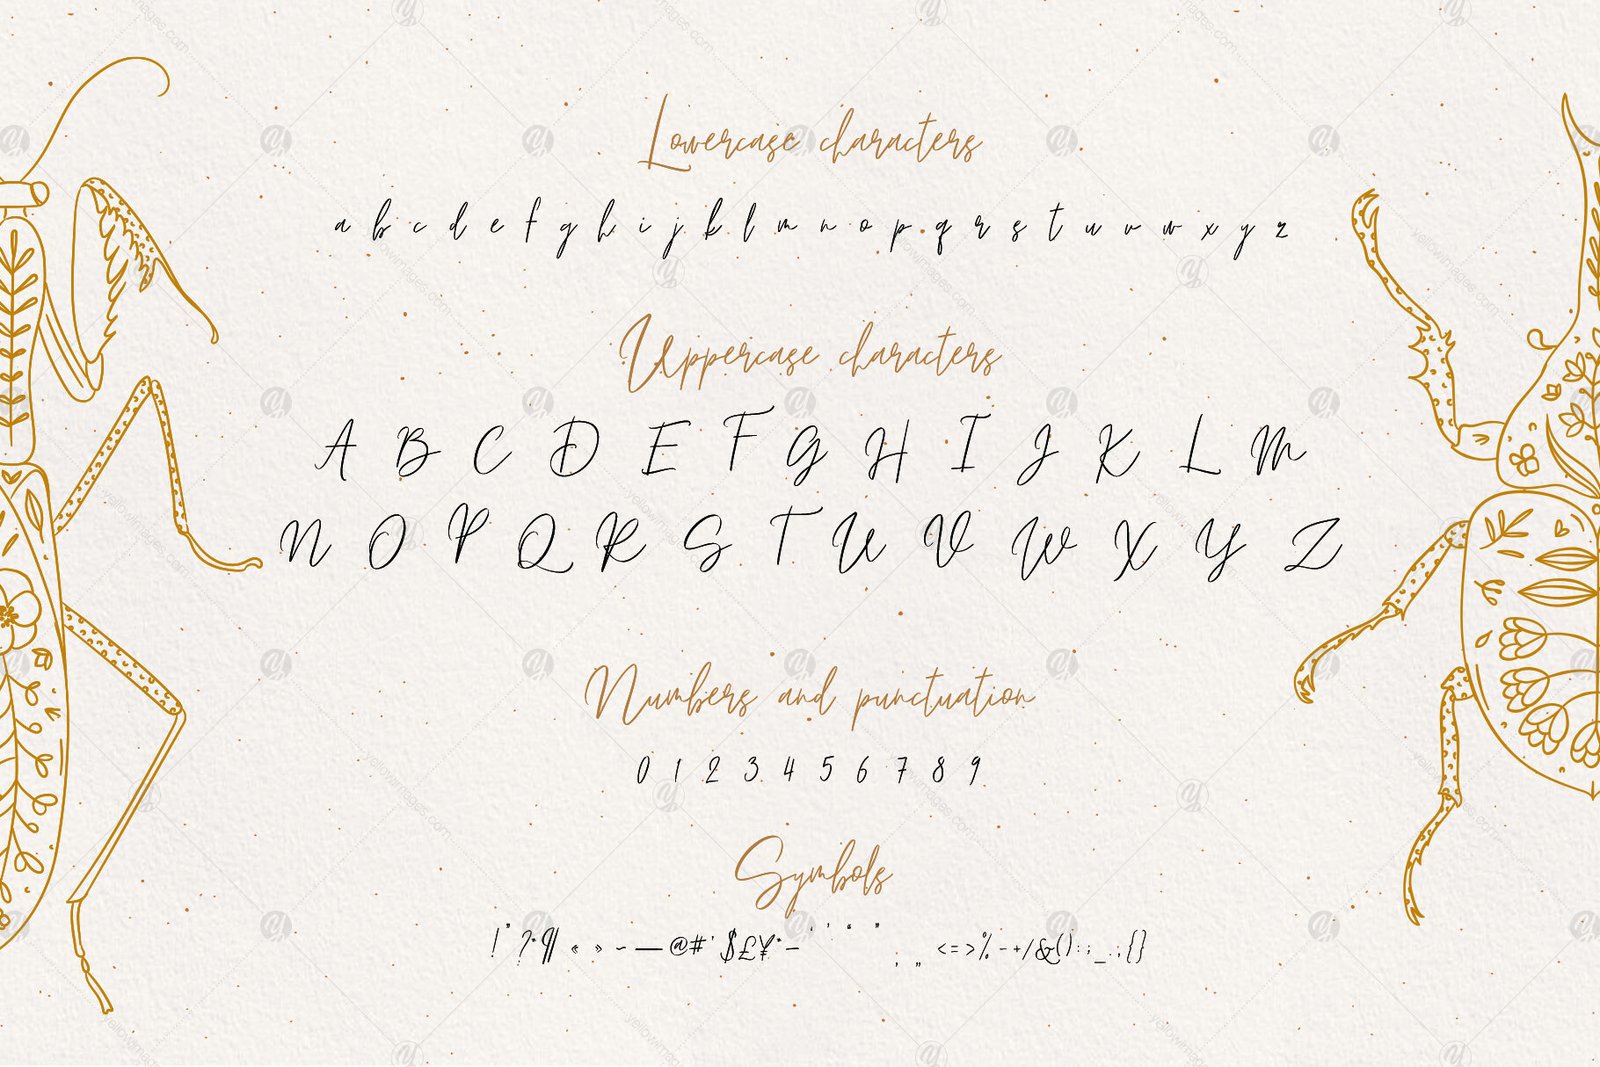 Lowercase characters
a b c d e f g h i j k l m n o p q r s t u v w x y z
Uppercase characters
A B C D E F G H I J K L M
N O P Q R S T U V W X Y Z
Numbers and punctuation
0 1 2 3 4 5 6 7 8 9
Symbols